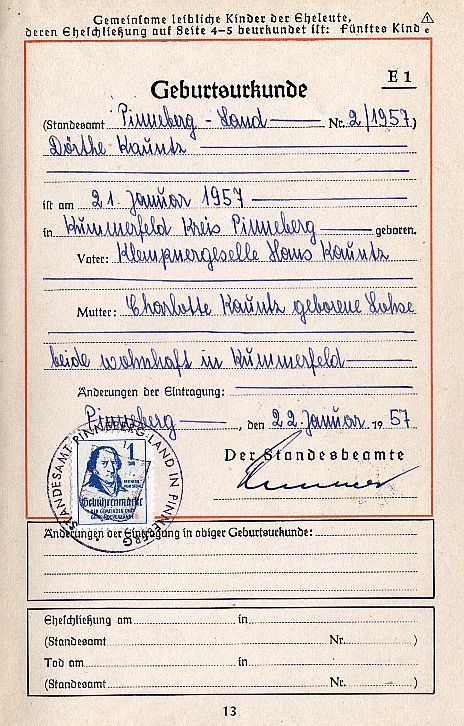 Gemeinsame leibliche Kinder der Eheleute,
deren Eheschließung auf Seite 4–5 beurkundet ist: Fünftes Kind e
E 1
Geburtsurkunde
(Standesamt Pinneberg - Land Nr. 2/1957)
Dörthe Kauntz
ist am 21. Januar 1957
in Kummerfeld Kreis Pinneberg geboren.
Vater: Klempnergeselle Hans Kauntz
Mutter: Charlotte Kauntz geborene Lohse
beide wohnhaft in Kummerfeld
Änderungen der Eintragung:
Pinneberg, den 22. Januar 1957
Der Standesbeamte
STANDESAMT PINNEBERG-LAND IN PINNEBERG
1
FREIHERR VOM STEIN
Gebührenmarke
DER GEMEINDEN UND
GEMEINDEVERBÄNDE
Änderungen der Eintragung in obiger Geburtsurkunde:
Eheschließung am in
(Standesamt Nr. )
Tod am in
(Standesamt Nr. )
13